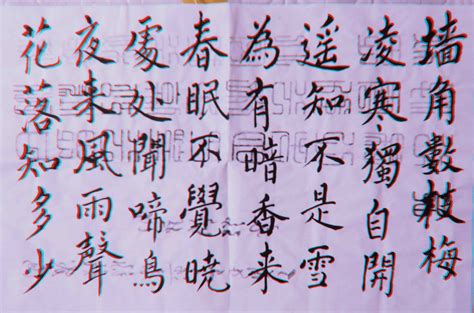 墙角數枝梅
凌寒獨自開
遥知不是雪
為有暗香来
春眠不覺曉
處处聞啼鳥
夜来風雨聲
花落知多少